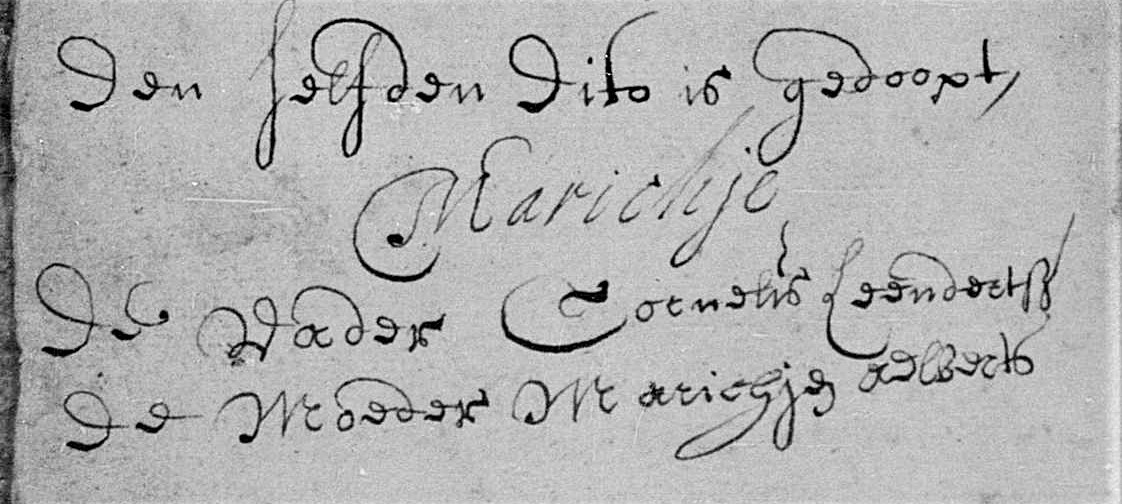 Den selfden Dito is gedoopt,
Marichje
De Vader Cornelis Leendertß
De Moeder Marichje aelberts